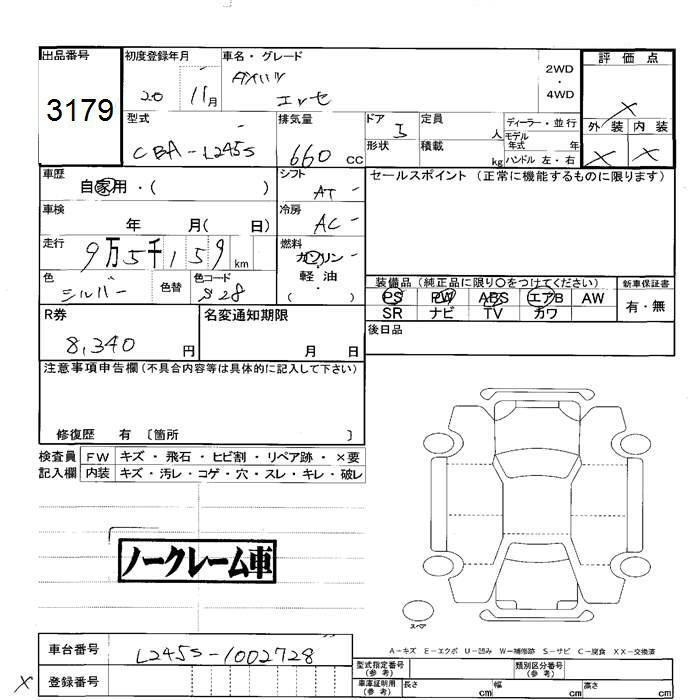 出品番号 初度登録年月 車名・グレード 2WD・4WD 評価点
3179 20 11月 ダイハツ エッセ ×
型式 排気量 ドア 定員 ディーラー・並行 外装 内装
CBA-L245S 660 cc 5 人 モデル年式 年 × ×
形状 積載 kg ハンドル 左・右
車歴 自家用・( ) シフト AT セールスポイント (正常に機能するものに限ります)
車検 年 月( 日) 冷房 AC
走行 9万5千159km 燃料 ガソリン・軽油・( )
色 シルバー 色替 色コード S28
装備品 (純正品に限り○をつけてください) 新車保証書
PS PW ABS エアB AW 有・無
SR ナビ TV カワ
R券 8,340 円 名変通知期限 月 日 後日品
注意事項申告欄 (不具合内容等は具体的に記入して下さい)
修復歴 有 〔箇所 〕
検査員 FW キズ・飛石・ヒビ割・リペア跡・×要
記入欄 内装 キズ・汚レ・コゲ・穴・スレ・キレ・破レ
ノークレーム車
スペア
A-キズ E-エクボ U-凹み W-補修跡 S-サビ C-腐食 XX-交換済
車台番号 L245S-1002728
× 登録番号
型式指定番号 (参考) 類別区分番号 (参考)
車庫証明用 (参考) 長さ cm 幅 cm 高さ cm